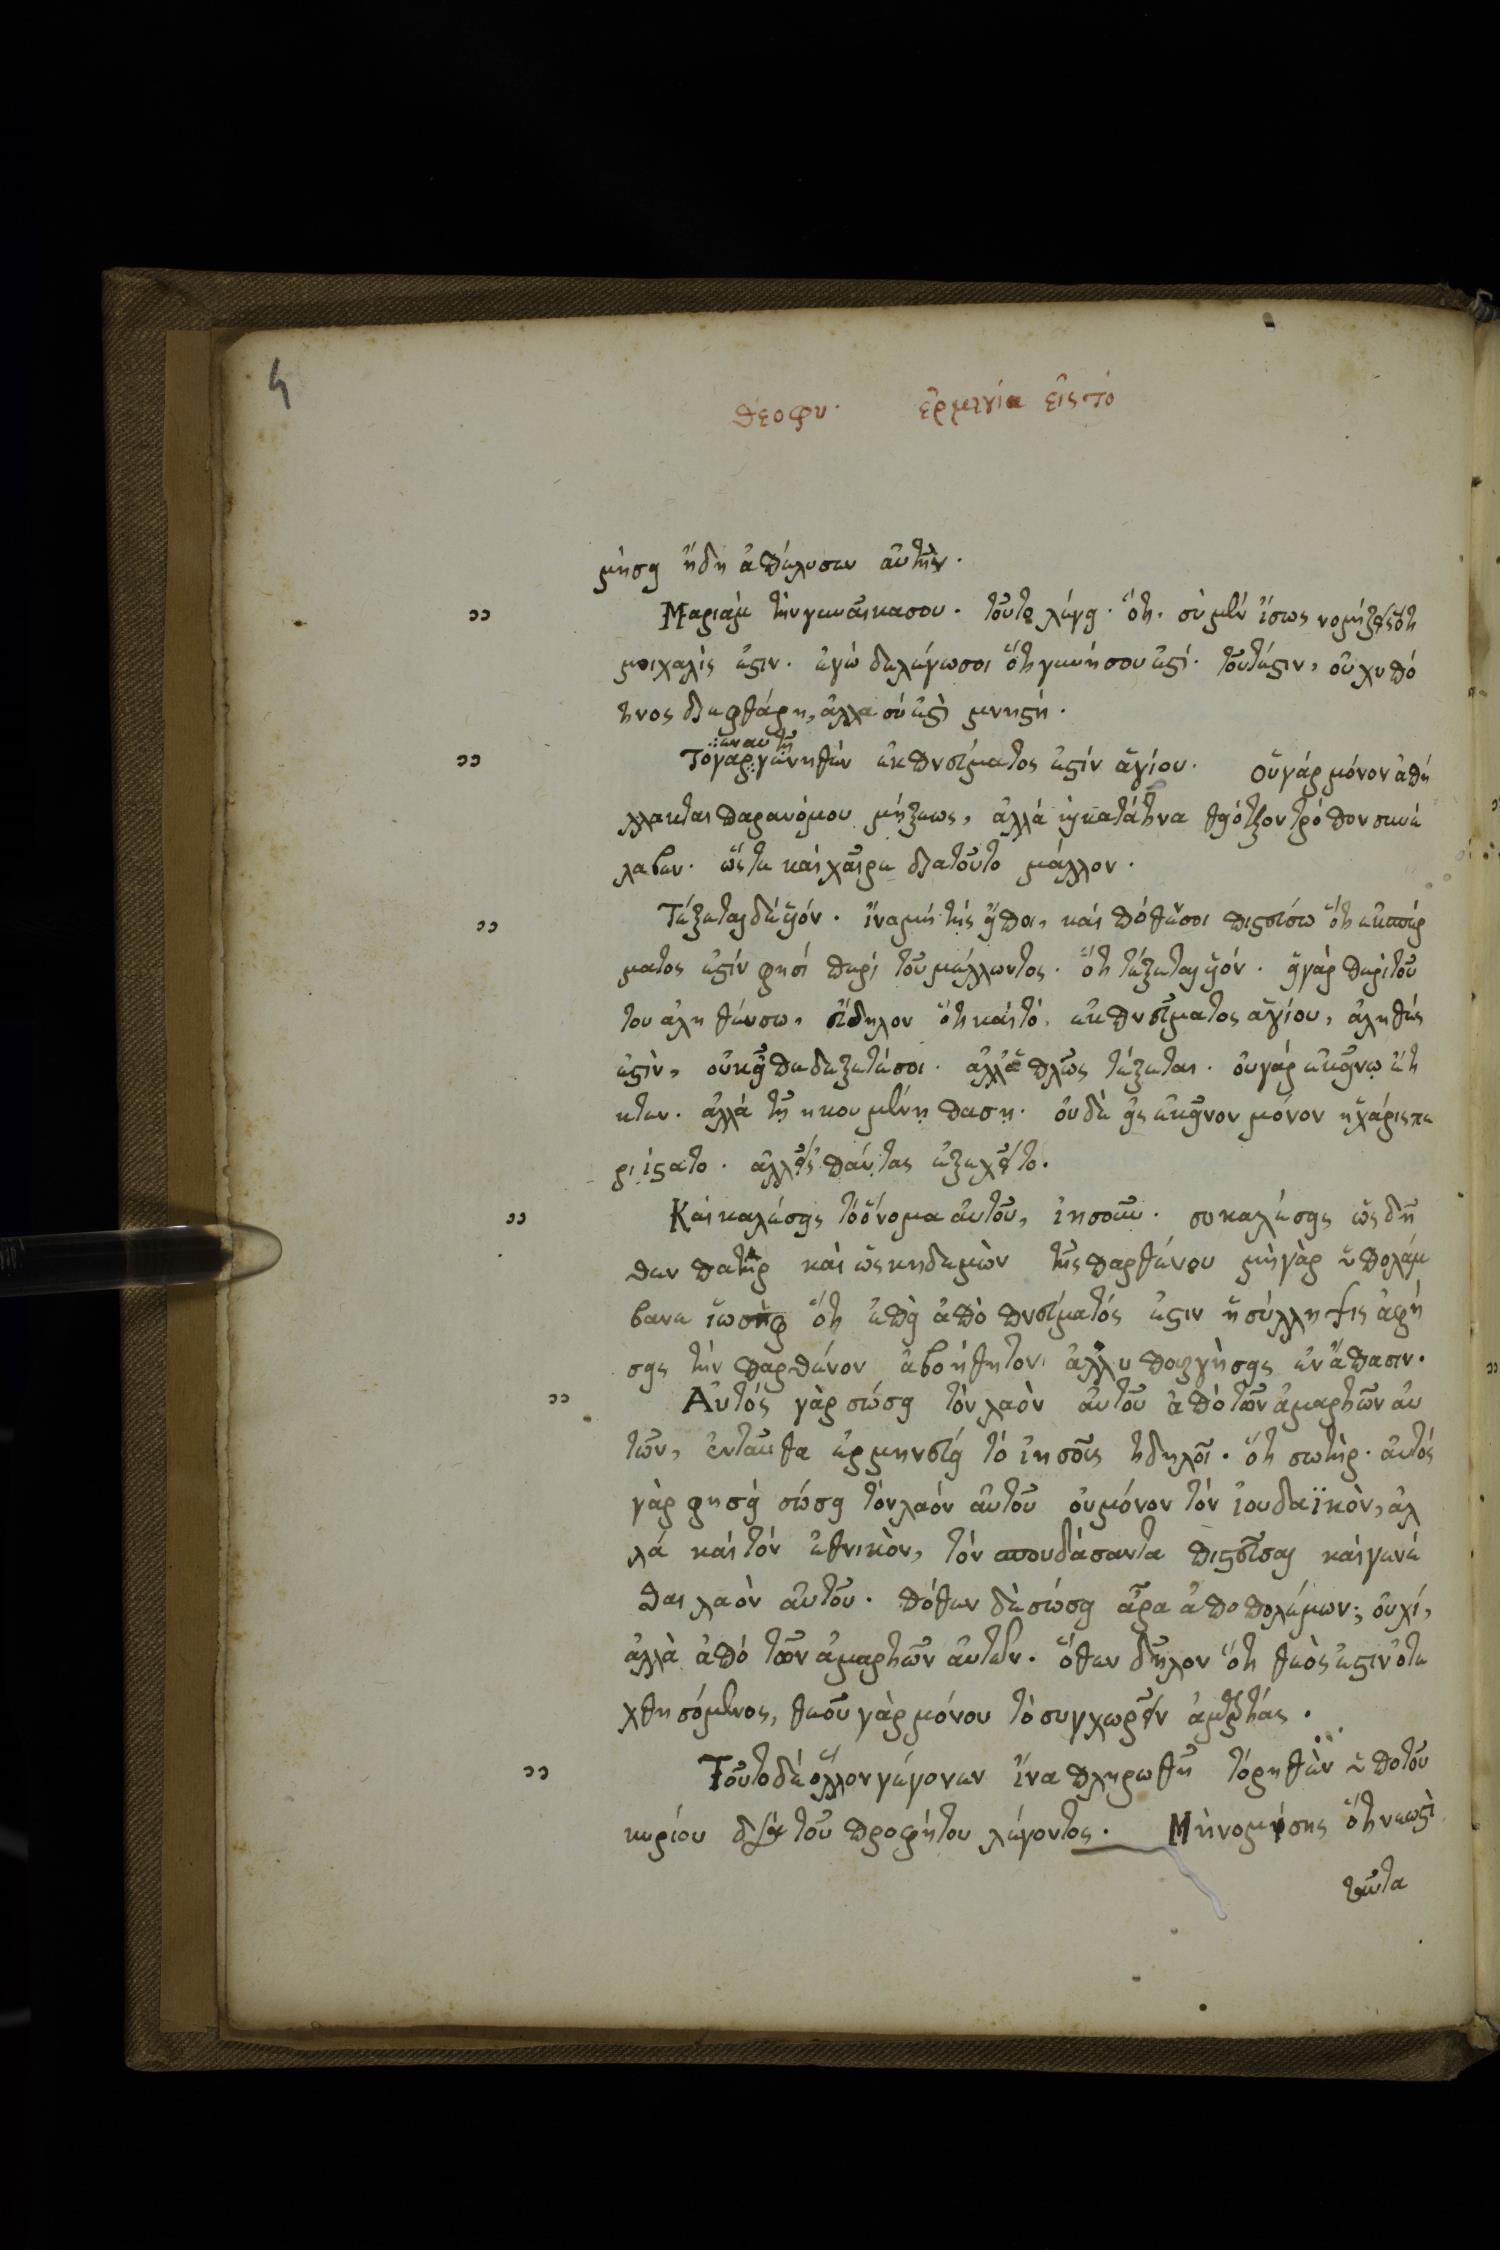 4
θεοφυ· ἑρμινία εἰς τὸ
μησει ἤδη ἀπέλυσεν αὐτὴν·
Μαριὰμ τὴν γυναῖκα σου· τοῦτο λέγει· ὅτι· σὺ μὲν ἴσως νομίζεις ὅτι
μοιχαλίς ἐστιν· ἐγὼ δὲ λέγω σοι ὅτι γυνή σου ἐστί· τουτέστιν, οὐχ ὑπό
τινος διεφθάρη, ἀλλὰ σύ ἐστι μνηστή·
ἐν αὐτῇ
Τὸ γὰρ γεννηθὲν ἐκ πνεύματος ἐστὶν ἁγίου· οὐ γὰρ μόνον ἀπή
λλακται παρανόμου μίξεως, ἀλλὰ καὶ κατά τινα θειότερον τρόπον συνέ
λαβεν· ὥστε καὶ χαῖρε διατοῦτο μᾶλλον·
Τέξεται δὲ υἱόν· ἵνα μή τις εἴποι, καὶ πόθεν σοι πιστεύσω ὅτι ἐκ πνεύ
ματος ἐστίν φησί περὶ τοῦ μέλλοντος· ὅτι τέξεται υἱόν· εἰ γὰρ περὶ τού
του ἀληθεύσω, εὔδηλον ὅτι καὶ τὸ ἐκ πνεύματος ἁγίου, ἀληθές
ἐστιν, οὐκ εἶπε δὲ τέξεται σοι· ἀλλ' ἁπλῶς τέξεται· οὐ γὰρ ἐκείνῳ ἔτι
κτεν· ἀλλὰ τῇ οἰκουμένῃ πάσῃ· οὐδὲ εἰς ἐκεῖνον μόνον ἡ χάρις πε
ριίστατο· ἀλλ' εἰς πάντας ἐξεχεῖτο·
Καὶ καλέσεις τὸ ὄνομα αὐτοῦ, ἰησοῦν· συ καλέσεις ὡς δῆ
θεν πατὴρ καὶ ὡς κηδεμὼν τῆς παρθένου μὴ γὰρ ὑπολάμ
βανε ἰωσὴφ ὅτι ἐπεὶ ἀπὸ πνεύματός ἐστιν ἡ σύλληψις ἀφή
σεις τὴν παρθένον ἀβοήθητον· ἀλλ' ὑπουργήσεις ἐν ἅπασιν·
Αὐτός γὰρ σώσει τὸν λαὸν αὐτοῦ ἀπὸ τῶν ἁμαρτιῶν αὐ
τῶν, ἐνταῦθα ἑρμηνεύει τὸ ἰησοῦς τί δηλοῖ· ὅτι σωτήρ· αὐτός
γὰρ φησί σώσει τὸν λαὸν αὐτοῦ οὐ μόνον τὸν ἰουδαϊκὸν, ἀλ
λὰ καὶ τὸν ἐθνικὸν, τὸν σπουδάσαντα πιστεῦσαι καὶ γενέ
σθαι λαὸν αὐτοῦ· πόθεν δὲ σώσει ἆρα ἀπὸ πολέμων; οὐχί,
ἀλλὰ ἀπὸ τῶν ἁμαρτιῶν αὐτῶν· ὅθεν δῆλον ὅτι θεὸς ἐστιν ὁ τε
χθησόμενος, θεοῦ γὰρ μόνου τὸ συγχωρεῖν ἁμαρτίας·
Τοῦτο δὲ ὅλον γέγονεν ἵνα πληρωθῇ τὸ ρηθὲν ὑπὸ τοῦ
κυρίου διὰ τοῦ προφήτου λέγοντος· Μὴ νομίσῃς ὅτι νεωστὶ
ταῦτα